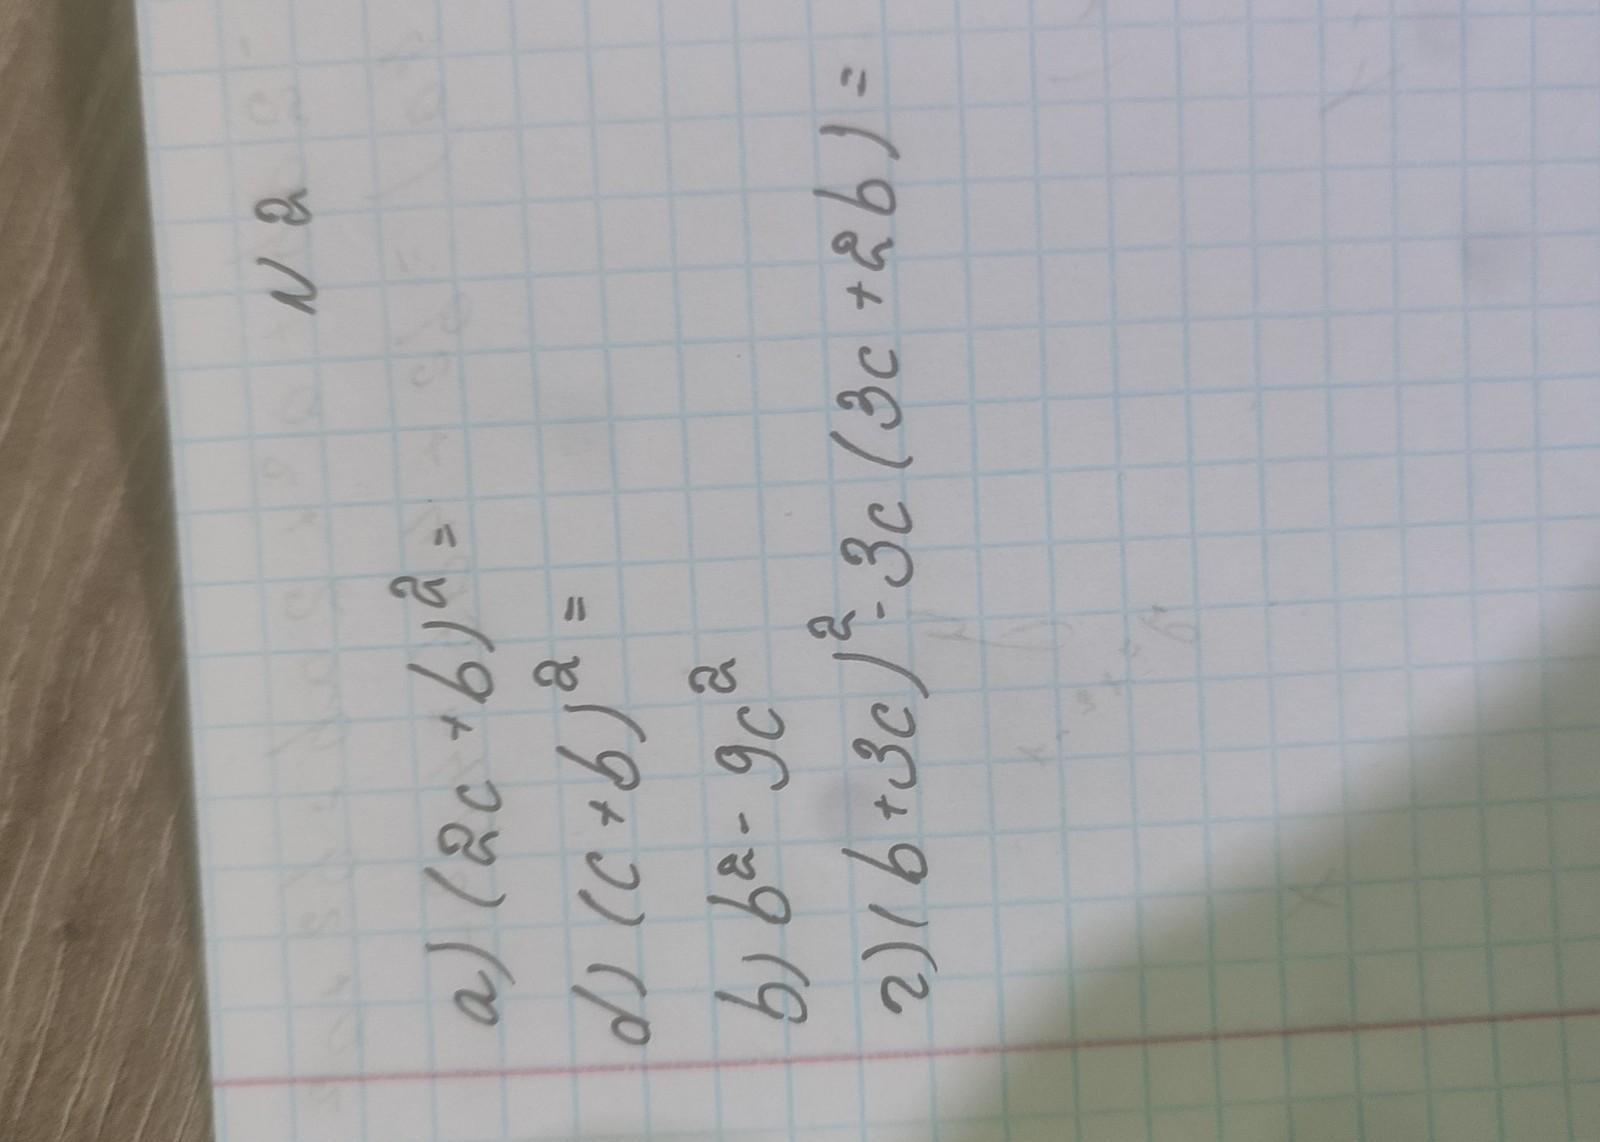 N 2
а) (2c + b)² =
б) (c + b)² =
в) b² - 9c²
г) (b + 3c)² - 3c (3c + 2b) =